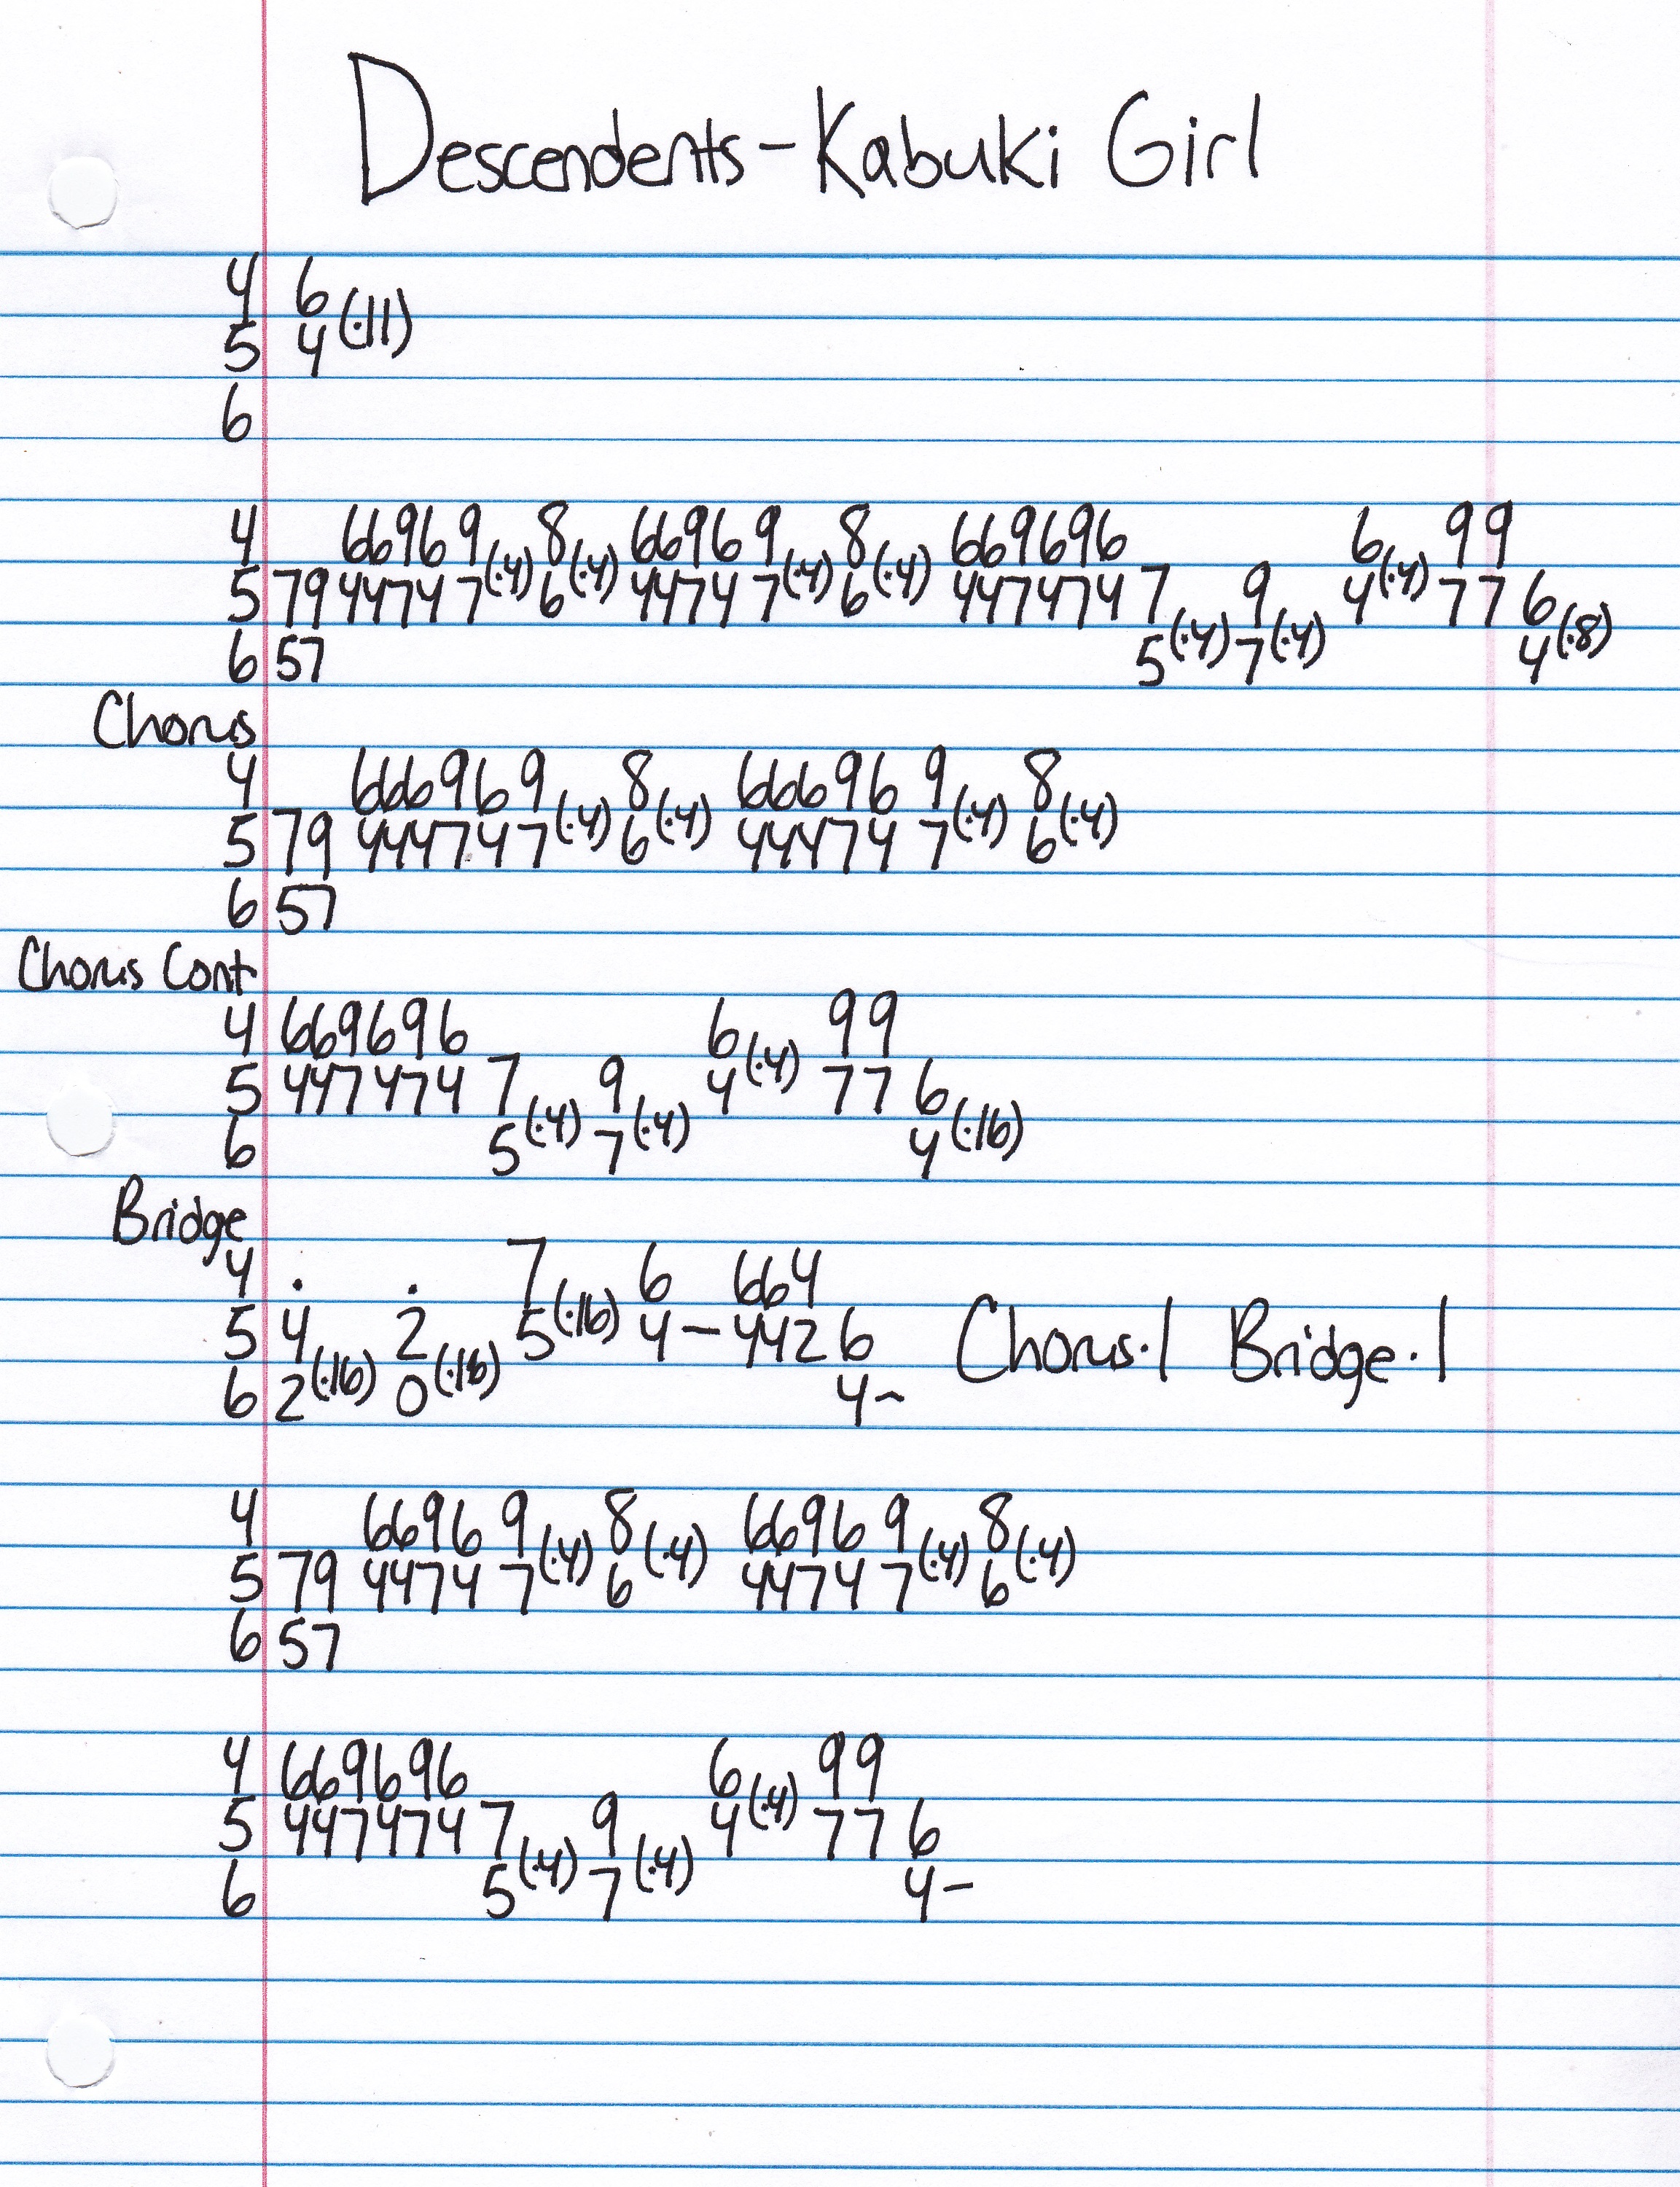 Descendents - Kabuki Girl
4 6
5 4 (·11)
6
4 66969 (·4) 8 (·4) 66969 (·4) 8 (·4) 669696 6 (·4) 99
5 79 44747 6 44747 6 447474 7 9 4 77 6
6 57 5 (·4) 7 (·4) 4 (·8)
Chorus
4 666969 (·4) 8 (·4) 66696 9 (·4) 8 (·4)
5 79 444747 6 44474 7 6
6 57
Chorus Cont
4 669696 6 (·4) 99
5 447474 7 9 4 77 6
6 5 (·4) 7 (·4) 4 (·16)
Bridge
4 . . 7 6 664
5 4 2 5 (·16) 4 - 442 6 Chorus·1 Bridge·1
6 2 (·16) 0 (·16) 4 ~
4 6696 9 (·4) 8 (·4) 6696 9 (·4) 8 (·4)
5 79 4474 7 6 4474 7 6
6 57
4 669696 6 (·4) 99
5 447474 7 9 4 77 6
6 5 (·4) 7 (·4) 4 -